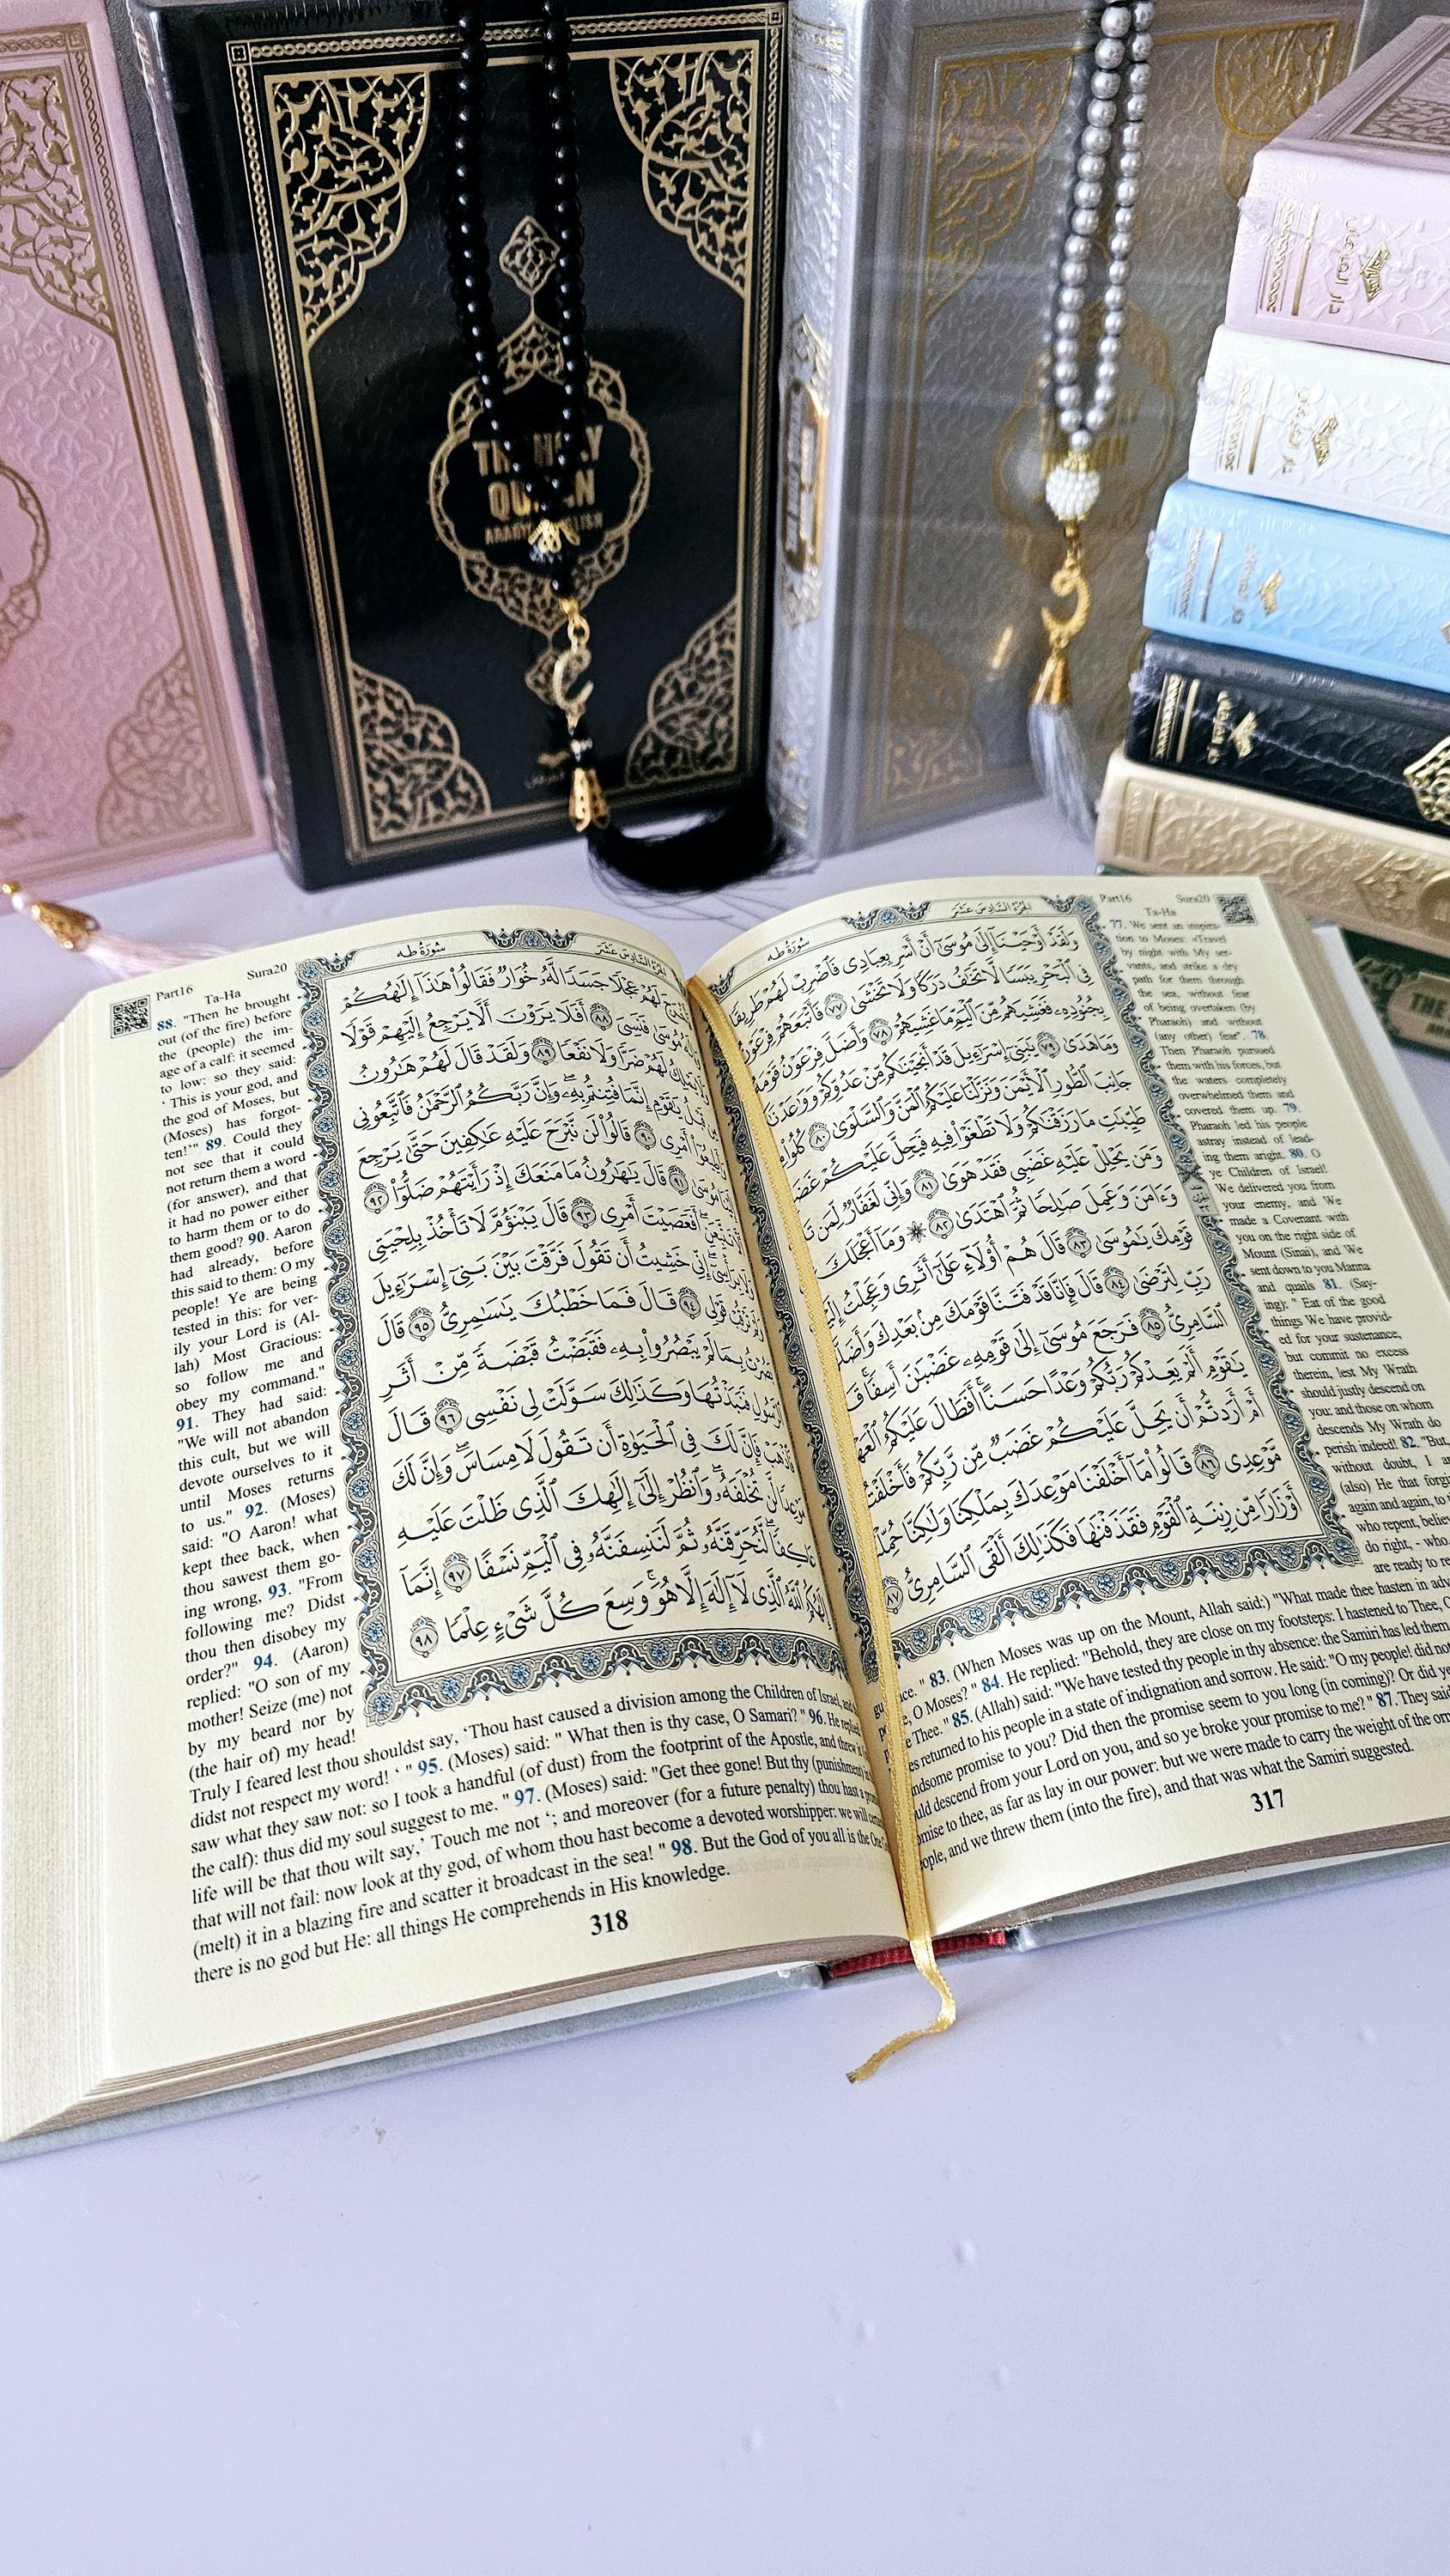 THE HOLY
QURAN
دار المعرفة
دار المعرفة
دار المعرفة
THE
Part16 Sura20
Ta-Ha
سُورَةُ طه الجُزْءُ السَّادِسَ عَشَرَ
وَلَقَدْ أَوْحَيْنَا إِلَىٰ مُوسَىٰ أَنْ أَسْرِ بِعِبَادِي فَاضْرِبْ لَهُمْ طَرِيقًا
فِي الْبَحْرِ يَبَسًا لَّا تَخَافُ دَرَكًا وَلَا تَخْشَىٰ ٧٧ فَأَتْبَعَهُمْ فِرْعَوْنُ
بِجُنُودِهِ فَغَشِيَهُم مِّنَ الْيَمِّ مَا غَشِيَهُمْ ٧٨ وَأَضَلَّ فِرْعَوْنُ قَوْمَهُ
وَمَا هَدَىٰ ٧٩ يَٰبَنِي إِسْرَٰٓءِيلَ قَدْ أَنجَيْنَٰكُم مِّنْ عَدُوِّكُمْ وَوَٰعَدْنَٰ
جَانِبَ الطُّورِ الْأَيْمَنَ وَنَزَّلْنَا عَلَيْكُمُ الْمَنَّ وَالسَّلْوَىٰ ٨٠ كُلُوا
طَيِّبَٰتِ مَا رَزَقْنَٰكُمْ وَلَا تَطْغَوْا فِيهِ فَيَحِلَّ عَلَيْكُمْ
وَمَن يَحْلِلْ عَلَيْهِ غَضَبِي فَقَدْ هَوَىٰ ٨١ وَإِنِّي لَغَفَّارٌ لِّمَن
وَءَامَنَ وَعَمِلَ صَٰلِحًا ثُمَّ اهْتَدَىٰ ٨٢ ۞ وَمَا أَعْجَلَكَ
قَوْمِكَ يَٰمُوسَىٰ ٨٣ قَالَ هُمْ أُولَاءِ عَلَىٰ أَثَرِي وَعَجِلْتُ
رَبِّ لِتَرْضَىٰ ٨٤ قَالَ فَإِنَّا قَدْ فَتَنَّا قَوْمَكَ مِنۢ بَعْدِكَ
السَّامِرِيُّ ٨٥ فَرَجَعَ مُوسَىٰ إِلَىٰ قَوْمِهِ غَضْبَٰنَ أَسِفًا
يَٰقَوْمِ أَلَمْ يَعِدْكُمْ رَبُّكُمْ وَعْدًا حَسَنًا أَفَطَالَ عَلَيْكُمُ
أَمْ أَرَدتُّمْ أَن يَحِلَّ عَلَيْكُمْ غَضَبٌ مِّن رَّبِّكُمْ فَأَخْلَفْتُم
مَّوْعِدِي ٨٦ قَالُوا مَا أَخْلَفْنَا مَوْعِدَكَ بِمَلْكِنَا وَلَٰكِنَّا
أَوْزَارًا مِّن زِينَةِ الْقَوْمِ فَقَذَفْنَٰهَا فَكَذَٰلِكَ أَلْقَى السَّامِرِيُّ ٨٧
77. We sent an inspira-
tion to Moses: «Travel
by night with My ser-
vants, and strike a dry
path for them through
the sea, without fear
of being overtaken (by
Pharaoh) and without
(any other) fear". 78.
Then Pharaoh pursued
them with his forces, but
the waters completely
overwhelmed them and
covered them up. 79.
Pharaoh led his people
astray instead of lead-
ing them aright. 80. O
ye Children of Israel!
We delivered you from
your enemy, and We
made a Covenant with
you on the right side of
Mount (Sinai), and We
sent down to you Manna
and quails 81. (Say-
ing): " Eat of the good
things We have provid-
ed for your sustenance,
but commit no excess
therein, lest My Wrath
should justly descend on
you: and those on whom
descends My Wrath do
perish indeed! 82. "But,
without doubt, I
(also) He that
again and again, to
who repent,
do right, - who.
are ready to
" 83. (When Moses was up on the Mount, Allah said:) "What made thee hasten in
O Moses? " 84. He replied: "Behold, they are close on my footsteps: I hastened to Thee,
Thee." 85. (Allah) said: "We have tested thy people in thy absence: the Samiri has led them
returned to his people in a state of indignation and sorrow. He said: "O my people! did not
promise to you? Did then the promise seem to you long (in coming)? Or did
descend from your Lord on you, and so ye broke your promise to me? " 87. They
to thee, as far as lay in our power: but we were made to carry the weight of the
and we threw them (into the fire), and that was what the Samiri suggested.
317
Part16 Sura20
Ta-Ha
سُورَةُ طه الجُزْءُ السَّادِسَ عَشَرَ
لَهُمْ عِجْلًا جَسَدًا لَّهُ خُوَارٌ فَقَالُوا هَٰذَا إِلَٰهُكُمْ
مُوسَىٰ فَنَسِيَ ٨٨ أَفَلَا يَرَوْنَ أَلَّا يَرْجِعُ إِلَيْهِمْ قَوْلًا
لَهُمْ ضَرًّا وَلَا نَفْعًا ٨٩ وَلَقَدْ قَالَ لَهُمْ هَٰرُونُ
يَٰقَوْمِ إِنَّمَا فُتِنتُم بِهِ وَإِنَّ رَبَّكُمُ الرَّحْمَٰنُ فَاتَّبِعُونِي
أَمْرِي ٩٠ قَالُوا لَن نَّبْرَحَ عَلَيْهِ عَٰكِفِينَ حَتَّىٰ يَرْجِعَ
مُوسَىٰ ٩١ قَالَ يَٰهَٰرُونُ مَا مَنَعَكَ إِذْ رَأَيْتَهُمْ ضَلُّوا ٩٢
أَفَعَصَيْتَ أَمْرِي ٩٣ قَالَ يَبْنَؤُمَّ لَا تَأْخُذْ بِلِحْيَتِي
إِنِّي خَشِيتُ أَن تَقُولَ فَرَّقْتَ بَيْنَ بَنِي إِسْرَٰٓءِيلَ
قَوْلِي ٩٤ قَالَ فَمَا خَطْبُكَ يَٰسَٰمِرِيُّ ٩٥ قَالَ
بِمَا لَمْ يَبْصُرُوا بِهِ فَقَبَضْتُ قَبْضَةً مِّنْ أَثَرِ
فَنَبَذْتُهَا وَكَذَٰلِكَ سَوَّلَتْ لِي نَفْسِي ٩٦ قَالَ
فَإِنَّ لَكَ فِي الْحَيَوٰةِ أَن تَقُولَ لَا مِسَاسَ وَإِنَّ لَكَ
لَّن تُخْلَفَهُ وَانظُرْ إِلَىٰ إِلَٰهِكَ الَّذِي ظَلْتَ عَلَيْهِ
لَّنُحَرِّقَنَّهُ ثُمَّ لَنَنسِفَنَّهُ فِي الْيَمِّ نَسْفًا ٩٧ إِنَّمَا
إِلَٰهُكُمُ اللَّهُ الَّذِي لَا إِلَٰهَ إِلَّا هُوَ وَسِعَ كُلَّ شَيْءٍ عِلْمًا ٩٨
88. "Then he brought
out (of the fire) before
the (people) the im-
age of a calf: it seemed
to low: so they said:
' This is your god, and
the god of Moses, but
(Moses) has forgot-
ten!'" 89. Could they
not see that it could
not return them a word
(for answer), and that
it had no power either
to harm them or to do
them good? 90. Aaron
had already, before
this said to them: O my
people! Ye are being
tested in this: for ver-
ily your Lord is (Al-
lah) Most Gracious:
so follow me and
obey my command."
91. They had said:
"We will not abandon
this cult, but we will
devote ourselves to it
until Moses returns
to us." 92. (Moses)
said: "O Aaron! what
kept thee back, when
thou sawest them go-
ing wrong, 93. "From
following me? Didst
thou then disobey my
order?" 94. (Aaron)
replied: "O son of my
mother! Seize (me) not
by my beard nor by
(the hair of) my head!
Truly I feared lest thou shouldst say, 'Thou hast caused a division among the Children of Israel,
didst not respect my word! ' " 95. (Moses) said: " What then is thy case, O Samari? " 96. He replied
saw what they saw not: so I took a handful (of dust) from the footprint of the Apostle, and threw
the calf): thus did my soul suggest to me. " 97. (Moses) said: "Get thee gone! But thy (punishment)
life will be that thou wilt say,' Touch me not '; and moreover (for a future penalty) thou hast a
that will not fail: now look at thy god, of whom thou hast become a devoted worshipper: we will
(melt) it in a blazing fire and scatter it broadcast in the sea! " 98. But the God of you all is the
there is no god but He: all things He comprehends in His knowledge.
318